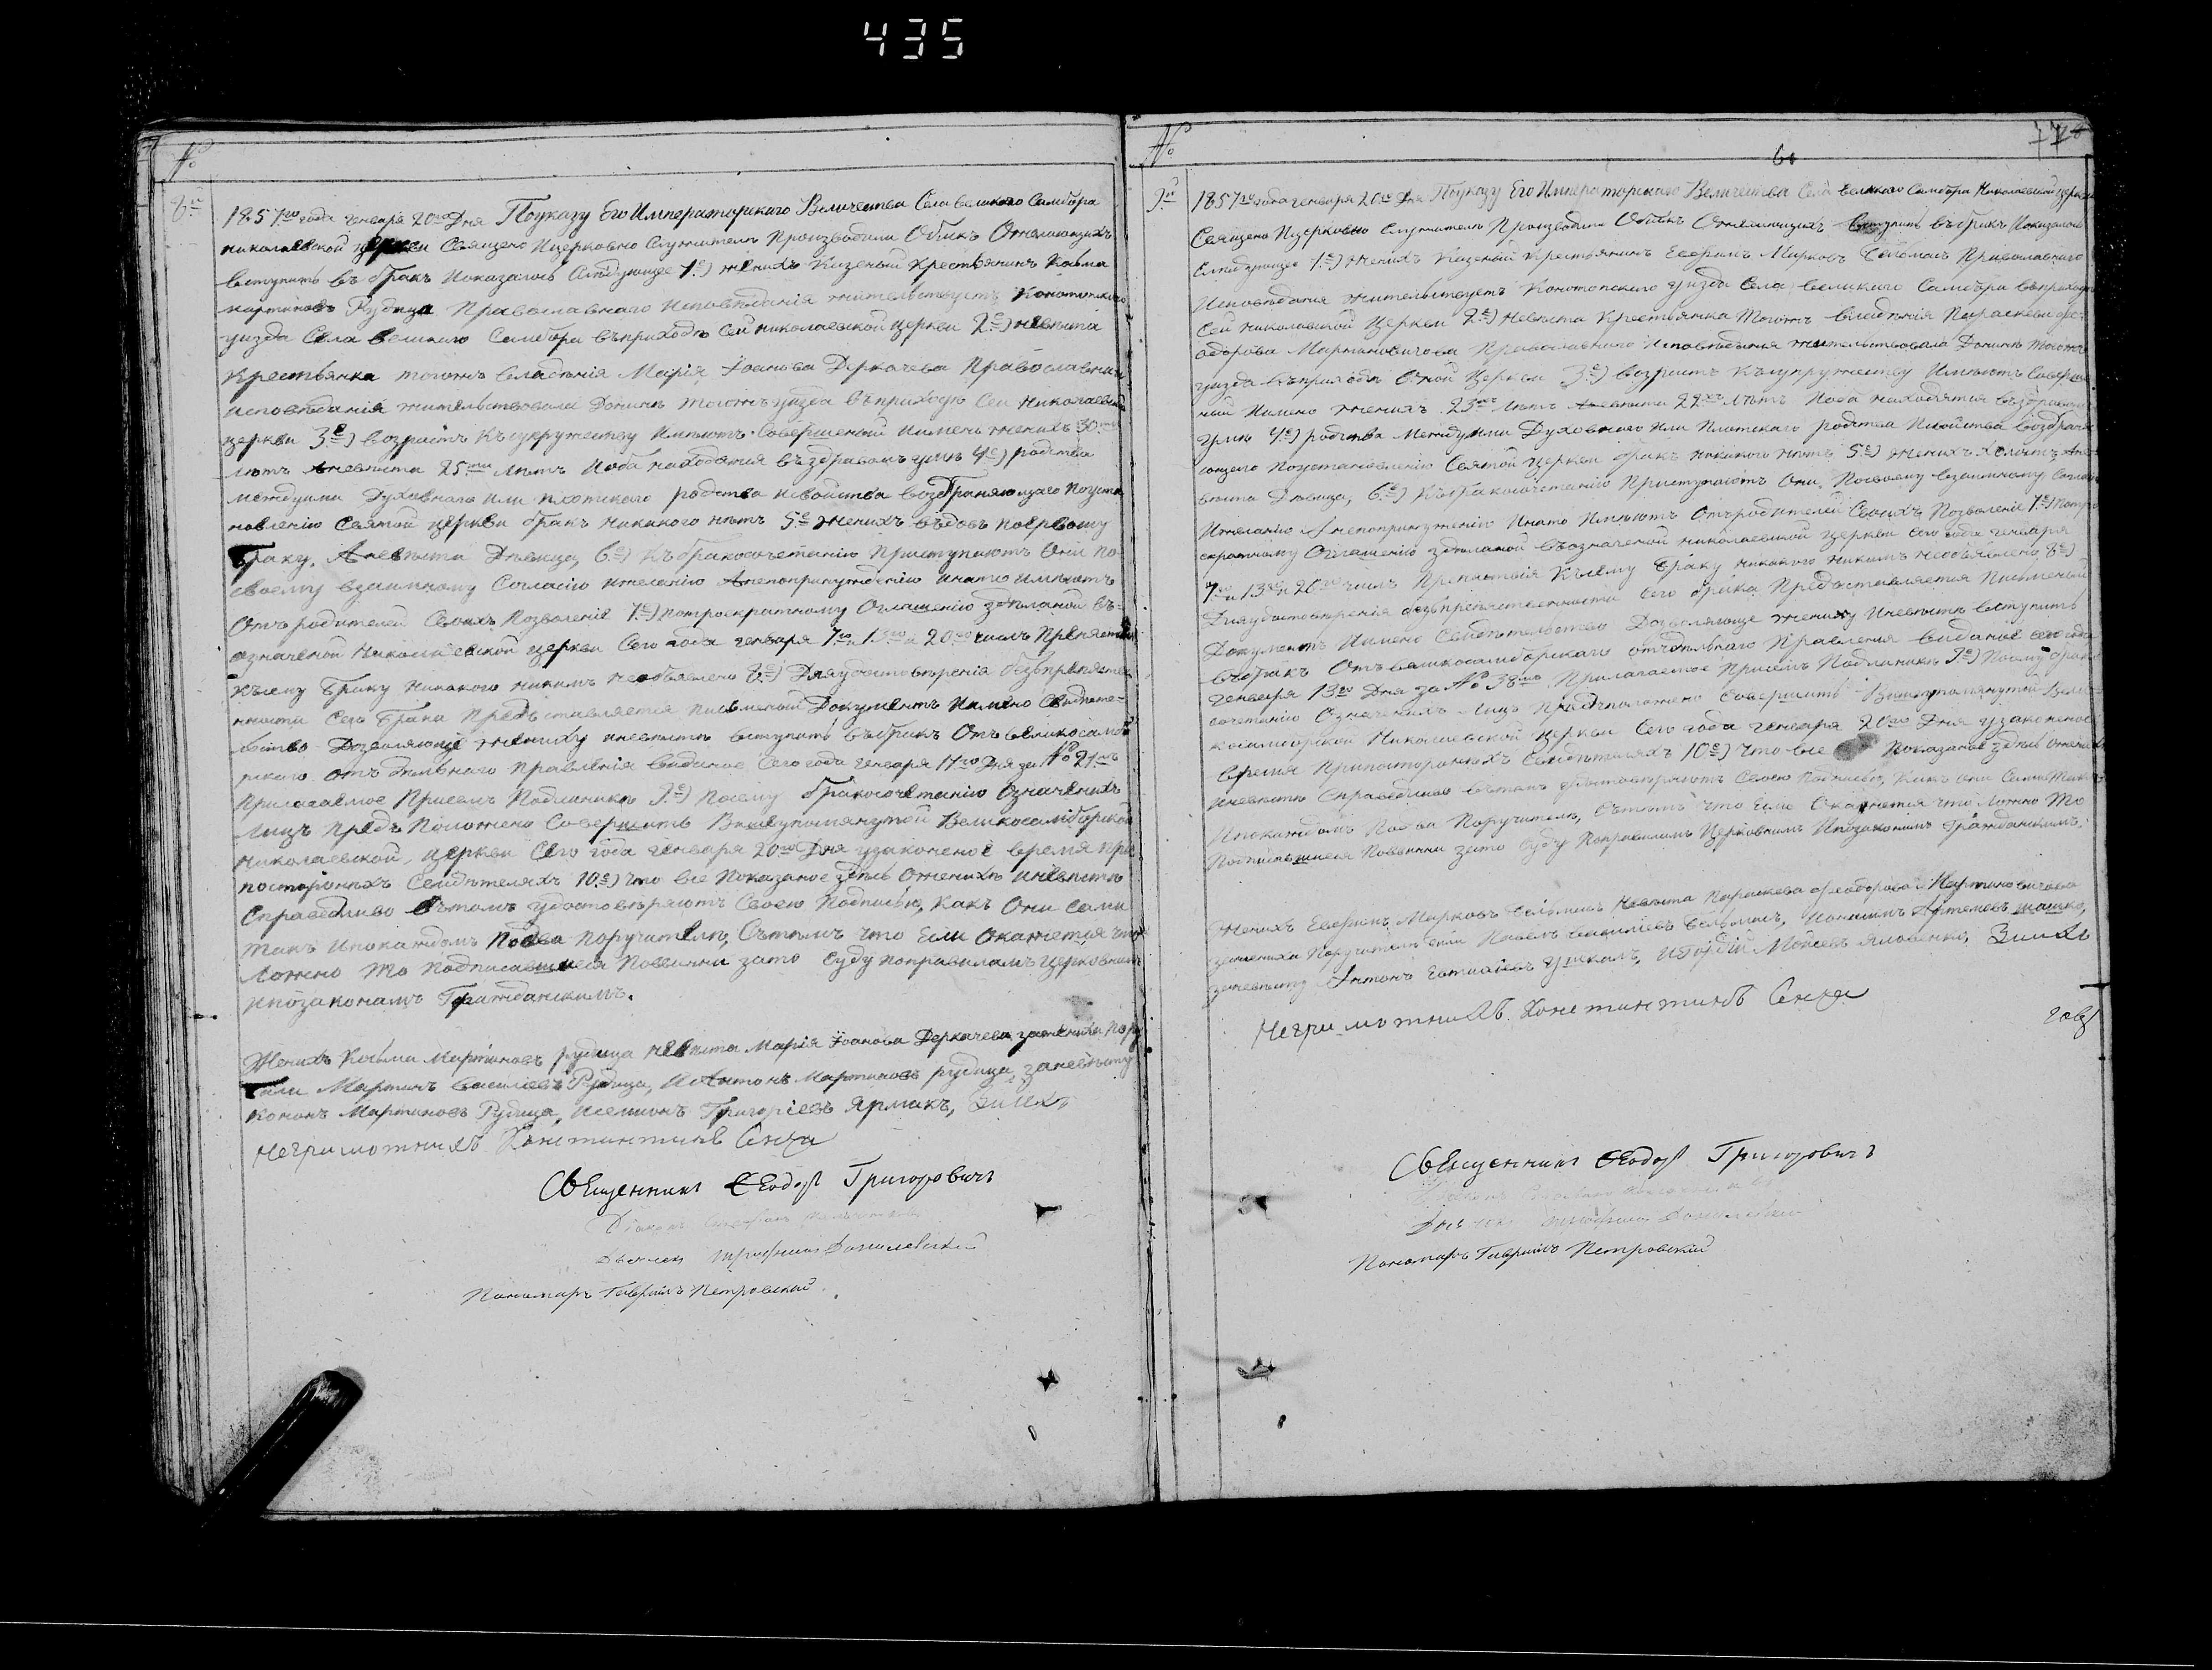 435
№
8й
1857го года генваря 20го Дня Поуказу Его Императорскаго Величества Села великого Самбора
николаевской церкви Священо Ицерковно Служители Производили Обыкъ Ожелающихъ
вступить въ бракъ Показалось Следующее 1е) женихъ Казеный Крестьянинъ Косма
мартиновъ Рудица Православнаго Исповѣданія жительствуетъ Конотопскаго
уизда Села великаго Самбора въприходѣ сей николаевской церкви 2е) невѣста
Крестьянка тогожъ владѣнія Марія Іоанова Деркачева Православнаго
исповѣданія жительствовала Донинѣ тогожъ уизда въприходѣ Сей Николаевской
церкви 3е) возрастъ Къ супружеству Имѣютъ Совершеный Имено женихъ 30
лѣтъ Аневѣста 25ти лѣтъ Иоба находятся въздравомъ умѣ 4е) родства
междуими Духовнаго или плотского родства исвойства возбраняющаго Поуста
новленію Святой церкви бракъ никакого нѣтъ 5е женихъ вдовъ попервому
браку, Аневѣста Девица, 6е) Къ бракосочетанію Приступаютъ Они по
своему взаимному Согласію ижеланію Анепопринужденію инато имѣютъ
Отъ родителей Своихъ Позволеніе 7е) потроекратному Оглашенію зделаной въ
означеной Николаевской церкви Сего года генваря 7го и 13го и 20го числъ Препятствія
Къ сему браку никакого никимъ необъявлено 8е) Для удостовѣренія безъпрепятстве
ности Сего брака Предъставляется письменый Документъ Имено Свидѣте-
льство Дозволяюще жениху иневѣстѣ вступить въбракъ Отъ великосамбо
рского отъдѣльнаго правленія виданое Сего года генваря 17го Дня за № 21мъ
Прилагаемое Присемъ Подлиникъ 9е) Посему бракосочетанію Означенихъ
Лицъ предъположено Совершить Вишеупомянутой Великосамборской
Николаевской, церкви Сего года генваря 20го Дня узаконеное время при
постороннихъ Свидѣтеляхъ 10е) что все Показаное здѣсь Оженихѣ иневѣстѣ
Справедливо вътомъ удостовѣряютъ Своею Подписью, Какъ Они Сами
такъ ипокаждомъ Подва поручителя, Сътѣмъ что Если Окажется что
Ложно то Подписавшиеся Повинни зато Суду поправиламъ церковнимъ
ипозаконамъ Гражданскимъ.
Женихъ Косма Мартиновъ рудица невѣста Марія Іоанова Деркачева, зажениха пору
чили Мартинъ василіевъ Рудица, Иантонъ Мартиновъ рудица, заневѣсту
Кононъ Мартиновъ Рудица, исемионъ Григоріевъ Ярмакъ,
Неграмотнихъ Константинъ Сенча
Священникъ Феодоръ Григоровичъ
Діаконъ
Дьячекъ Трофимъ Данилевскій
Пономаръ Гавріилъ Петровскій.
№
60
9й
1857го года генваря 20го Дня Поуказу Его Императорскаго Величества Села Великого Самбора Николаевской церкви
Священо Ицерковно Служители Производили Обыкъ Ожелающихъ вступить въбракъ Показалось
Следующее 1е) женихъ Казеный Крестьянинъ Марковъ Православнаго
Исповѣданія жительствуетъ Конотопскаго уизда Села великого Самбора въприходѣ
Сей Николаевской Церкви 2е) Невѣста Крестьянка Тогожъ владѣнія Параскева фео-
одорова Мартиновичова Православнаго исповѣданія жительствовала Донинѣ тогожъ
уизда въприходѣ Оной Церкви 3е) возрастъ Къ супружеству Имѣютъ Соверше
ный Имено женихъ 23хъ лѣтъ Аневѣста 22хъ лѣтъ Иоба находятся въздравомъ
умѣ 4е) родства Междуими Духовного или Плотскаго родства Исвойства возбраня
ющего Поустановленію Святой Церкви бракъ никакого нѣтъ 5е) Женихъ Холостъ Ане
вѣста Дѣвица, 6е) Къбракосочетанію Приступаютъ Они Посвоему взаимному Согласію
Ижеланію Анепопринужденію Инато Имѣютъ Отъродителей Своихъ Позволеніе 7е) Потро
екратному Оглашенію зделаной въозначеной Николаевской церкви сего года генваря
7го и 13го и 20го числъ Препятствія Къ сему браку никакого никимъ необъявлено 8е)
Дляудостовѣренія безъпрепятственности Сего брака Предъставляется Письменый
Документъ Имено Свидѣтельство Дозволяюще жениху Иневѣстѣ вступить
въбракъ Отъ великосамборскаго отъдѣльнаго Правленія виданое сего года
генваря 13го Дня за № 38мъ Прилагаемое Присемъ Подлиникъ 9е) Посему брако
сочетанію Означенихъ Лицъ Предположено Совершить Вишеупомянутой Вели-
косамборской Николаевской церкви Сего года генваря 20го Дня узаконеное
время Припостороннихъ Свидѣтеляхъ 10е) Что все Показаное здѣсь Оженихѣ
Иневѣстѣ Справедливо вътомъ удостовѣряютъ Своею Подписью, Какъ они Сами Такъ
Ипокаждомъ Подва Поручителя, Сътѣмъ что Если Окажется что Ложно То
Подписавшиеся Повинни зато Суду Поправиламъ Церковнимъ Ипозаконамъ Гражданскимъ.
Женихъ Марковъ Невѣста Параскева Феодорова Мартиновичова
зажениха Поручители были Павелъ Василіевъ Артемьевъ
заневѣсту Антонъ Моисеевъ Яковенко,
Неграмотнихъ Константинъ Сенча
Священникъ Феодоръ Григоровичъ
Данилевскій
Пономаръ Гавріилъ Петровскій